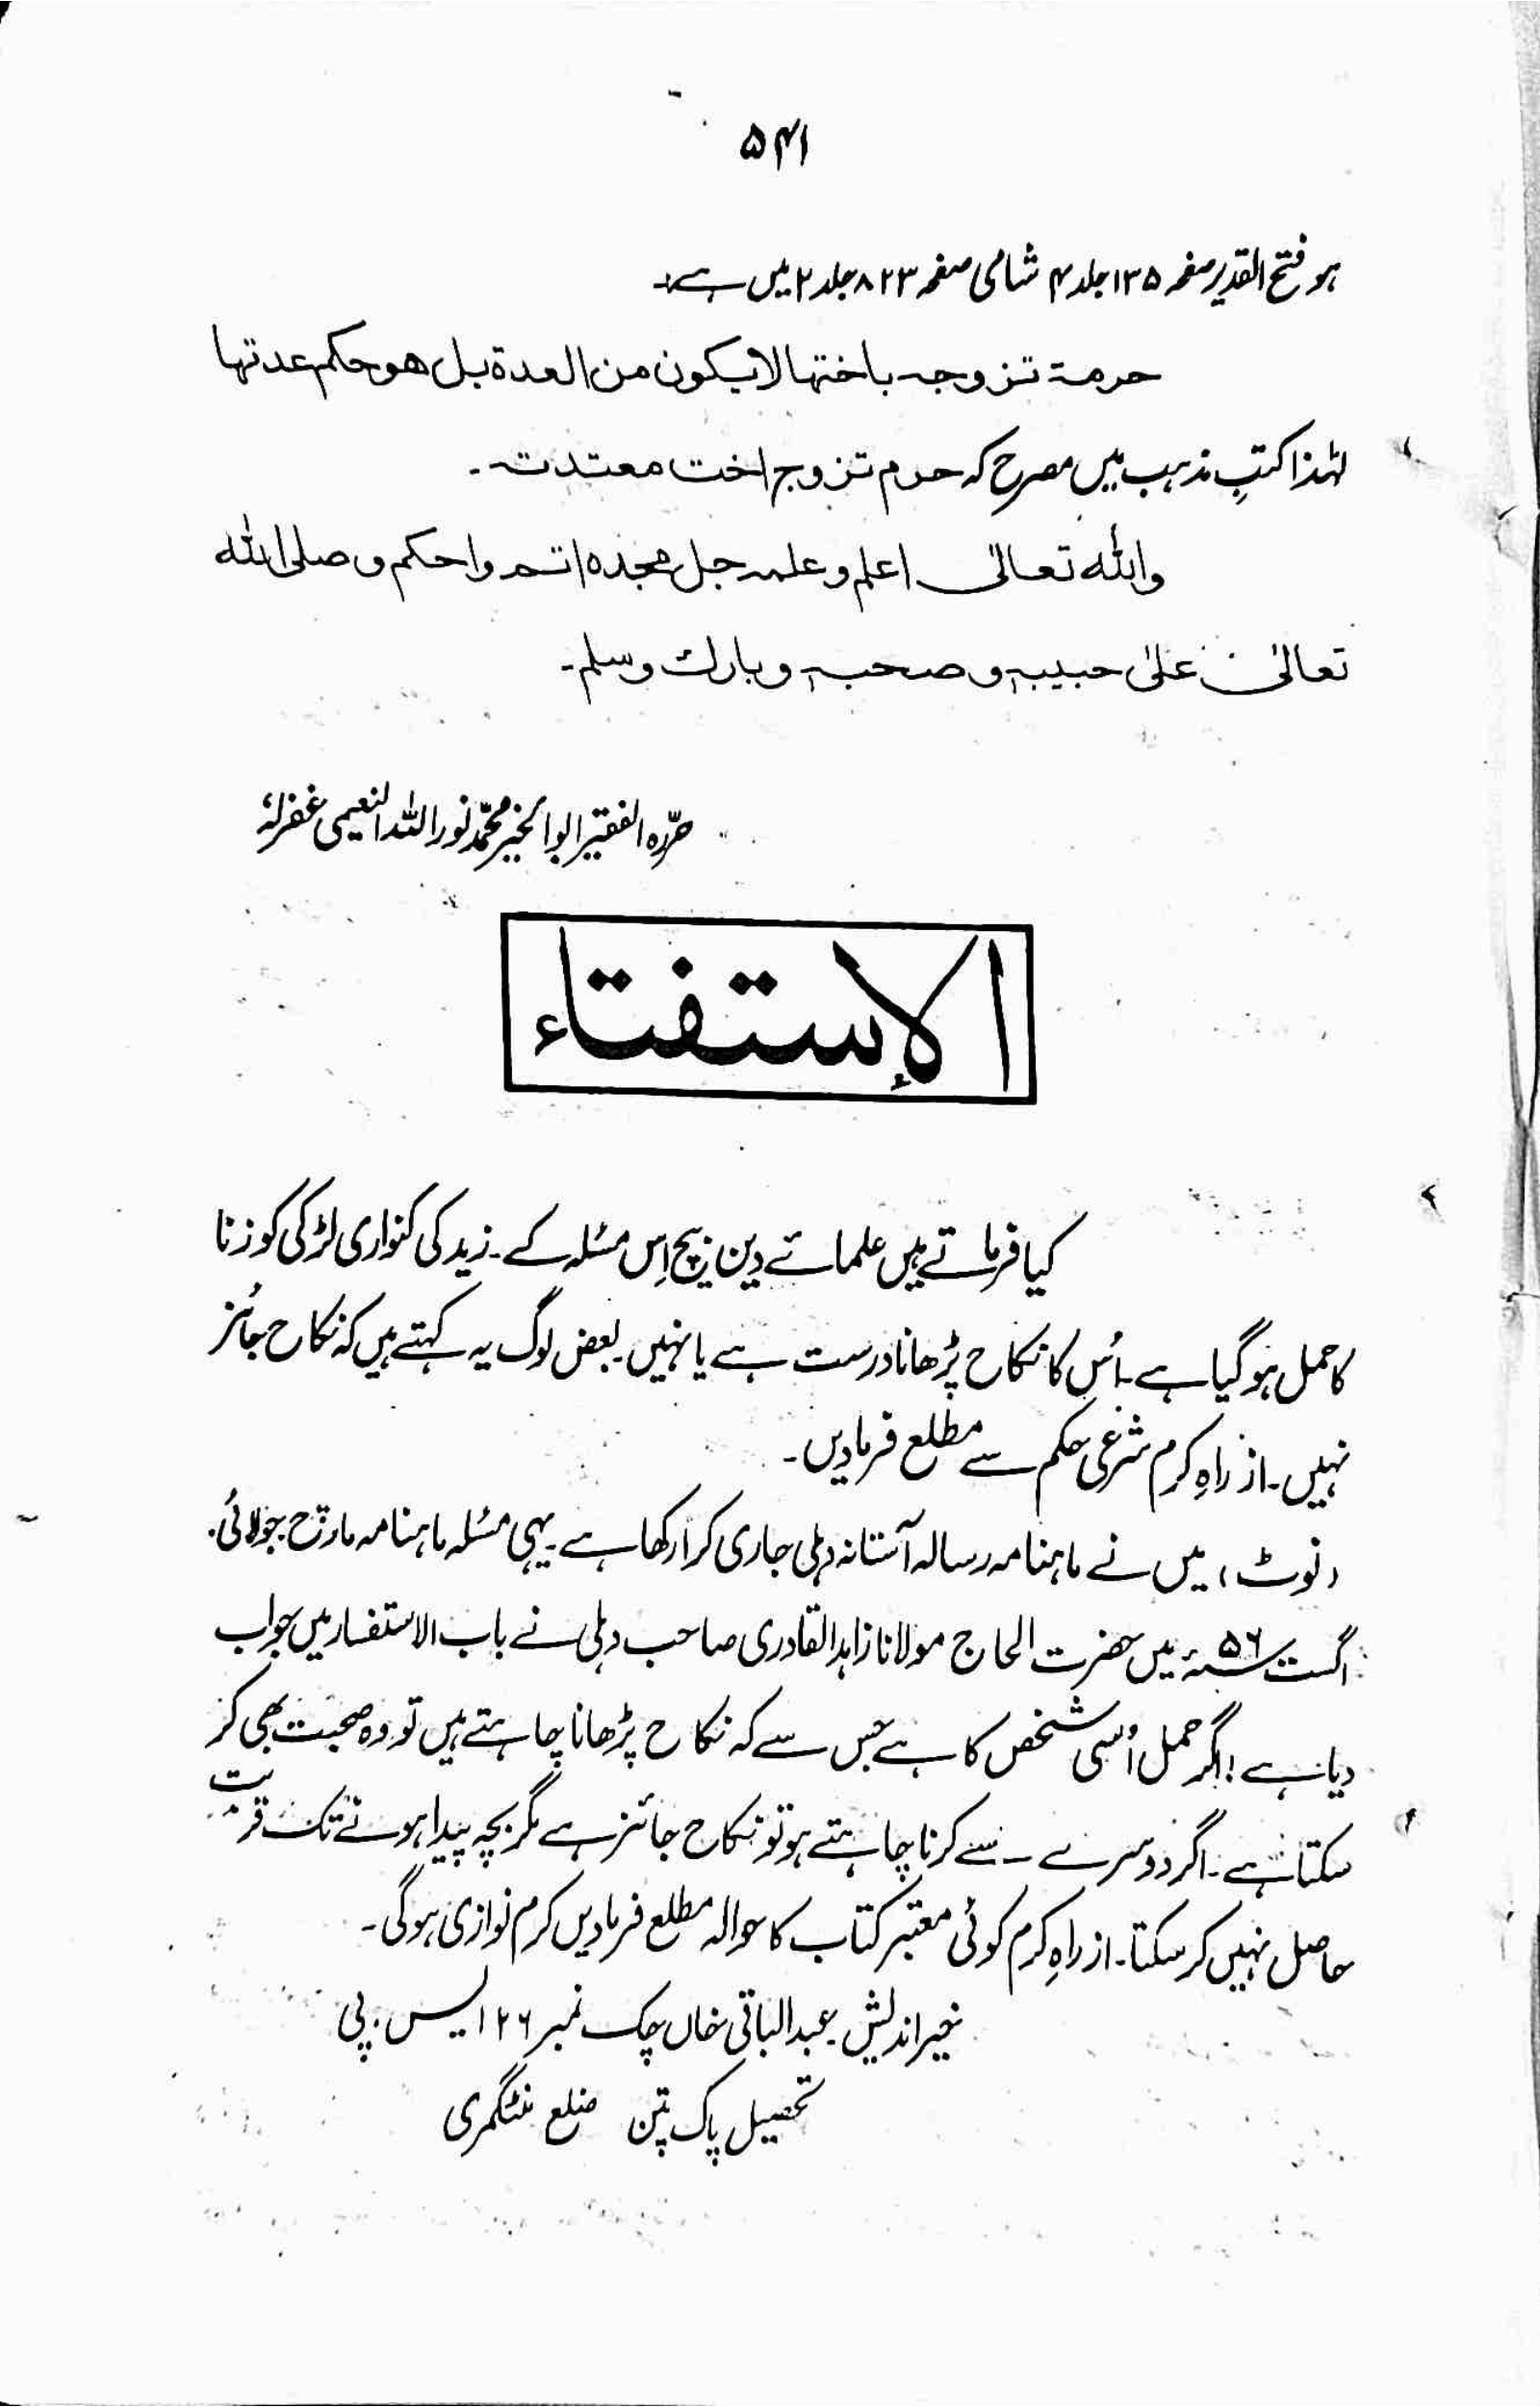 ۵۴۱
ہو فتح القدیر صفحہ ۱۳۵ جلد ۴ شامی صفحہ ۸۲۳ جلد ۲ میں ہے:۔
حرمۃ تزوجہ باختہا لا یکون من العدۃ بل ھو حکم عدتہا
لہٰذا کتبِ مذہب میں مصرح کہ حرم تزوج اخت معتدتہ۔
واللہ تعالیٰ اعلم و علمہ جل مجدہ اتم واحکم وصلی اللہ
تعالیٰ علیٰ حبیبہٖ وصحبہٖ وبارک وسلم۔
حرّرہ الفقیر ابوالخیر محمّد نور اللہ النعیمی غفرلہٗ
الإستفتاء
کیا فرماتے ہیں علمائے دین بیچ اِس مسئلہ کے۔ زید کی کنواری لڑکی کو زنا
کا حمل ہو گیا ہے۔ اُس کا نکاح پڑھانا درست ہے یا نہیں۔ بعض لوگ یہ کہتے ہیں کہ نکاح جائز
نہیں۔ از راہِ کرم شرعی حکم سے مطلع فرمادیں۔
(نوٹ) میں نے ماہنامہ رسالہ آستانہ دہلی جاری کرا رکھا ہے۔ یہی مسئلہ ماہنامہ مارچ جولائی۔
اگست ۵۶ سنہء میں حضرت الحاج مولانا زاہد القادری صاحب دہلی نے باب الاستفسار میں جواب
دیا ہے! اگر حمل اُسی شخص کا ہے جس سے کہ نکاح پڑھانا چاہتے ہیں تو وہ صحبت بھی کر
سکتا ہے۔ اگر دوسرے ۔ سے کرنا چاہتے ہو تو نکاح جائز ہے مگر بچہ پیدا ہونے تک قربت
حاصل نہیں کر سکتا۔ از راہِ کرم کوئی معتبر کتاب کا حوالہ مطلع فرمادیں کرم نوازی ہو گی۔
خیر اندیش۔ عبدالباقی خاں چک نمبر ۱۲۶ ایس۔ پی
تحصیل پاک پتن ضلع منٹگمری